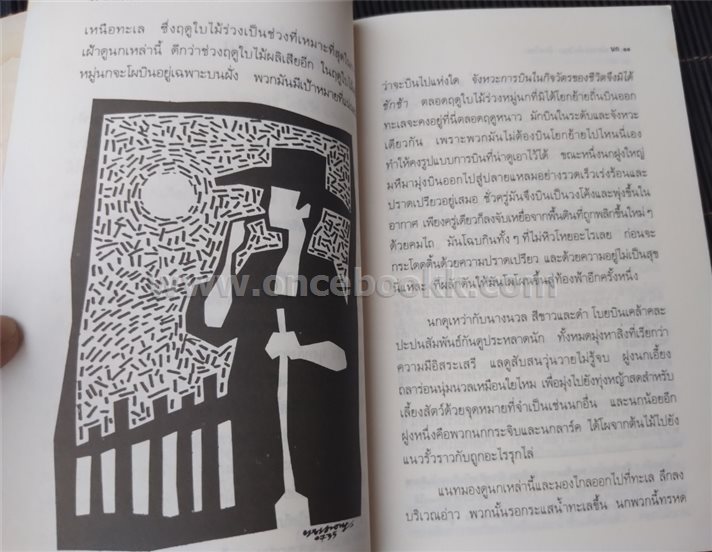 เหนือทะเล ซึ่งฤดูใบไม้ร่วงเป็นช่วงที่เหมาะที่สุดใน
เฝ้าดูนกเหล่านี้ ดีกว่าช่วงฤดูใบไม้ผลิเสียอีก ในฤดูใบไม้
หมู่นกจะโผบินอยู่เฉพาะบนฝั่ง พวกมันมีเป้าหมายที่
www.oncebookk.com
นก ๑๑
ว่าจะบินไปแห่งใด จังหวะการบินในกิจวัตรของชีวิตจึงมิได้
ชักช้า ตลอดฤดูใบไม้ร่วงหมู่นกที่มิได้โยกย้ายถิ่นบินออก
ทะเลจะคงอยู่ที่นี่ตลอดฤดูหนาว มักบินในระดับและจังหวะ
เดียวกัน เพราะพวกมันไม่ต้องบินโยกย้ายไปไหนนี่เอง
ทำให้คงรูปแบบการบินที่น่าดูเอาไว้ได้ ขณะหนึ่งนกฝูงใหญ่
มหึมามุ่งบินออกไปสู่ปลายแหลมอย่างรวดเร็วเร่งร้อนและ
ปราดเปรียวอยู่เสมอ ชั่วครู่มันจึงบินเป็นวงโค้งและพุ่งขึ้นใน
อากาศ เพียงครู่เดียวก็ลงจับเหยื่อจากพื้นดินที่ถูกพลิกขึ้นใหม่ๆ
ด้วยคมไถ มันโฉบกินทั้งๆ ที่ไม่หิวโหยอะไรเลย ก่อนจะ
กระโดดตื้นด้วยความปราดเปรียว และด้วยความอยู่ไม่เป็นสุข
นี่แหละ ที่ผลักดันให้มันโผโผนขึ้นสู่ท้องฟ้าอีกครั้งหนึ่ง
นกดุเหว่ากับนางนวล สีขาวและดำ โบยบินเคล้าคละ
ปะปนสัมพันธ์กันดูประหลาดนัก ทั้งหมดมุ่งหาสิ่งที่เรียกว่า
ความมีอิสระเสรี แลดูสับสนวุ่นวายไม่รู้จบ ฝูงนกเอี้ยง
ถลาร่อนนุ่มนวลเหมือนใยไหม เพื่อมุ่งไปยังทุ่งหญ้าสดสำหรับ
เลี้ยงสัตว์ด้วยจุดหมายที่จำเป็นเช่นนกอื่น และนกน้อยอีก
ฝูงหนึ่งคือพวกนกกระจิบและนกลาร์ค ได้โผจากต้นไม้ไปยัง
แนวรั้วราวกับถูกอะไรรุกไล่
แนทมองดูนกเหล่านี้และมองไกลออกไปที่ทะเล ลึกลง
บริเวณอ่าว พวกนั้นรอกระแสน้ำทะเลขึ้น นกพวกนี้ทรหด